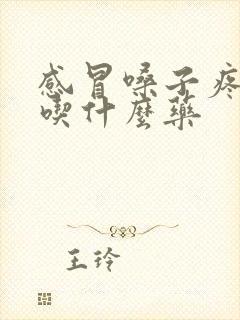 感冒嗓子疼
喫什麼藥
王玲